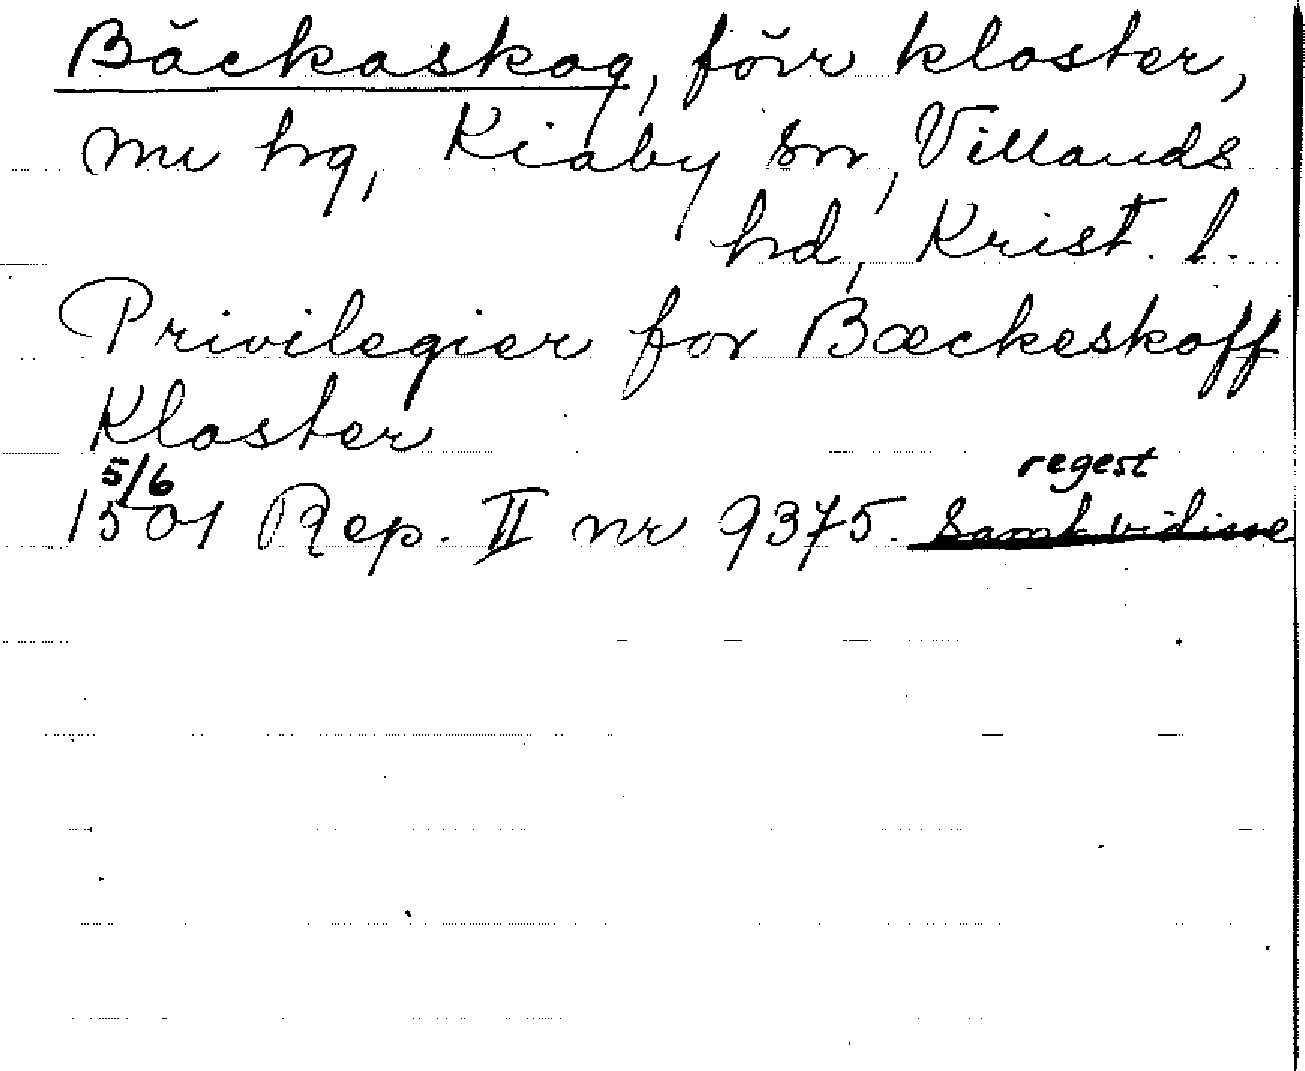 Bäckaskog, förr kloster,
nu hg, Kiaby sn, Villands
hd, Krist. l.
Privilegier for Bæckeskoff
Kloster
5/6 regest
1501 Rep. II nr 9375. Samt vidisse